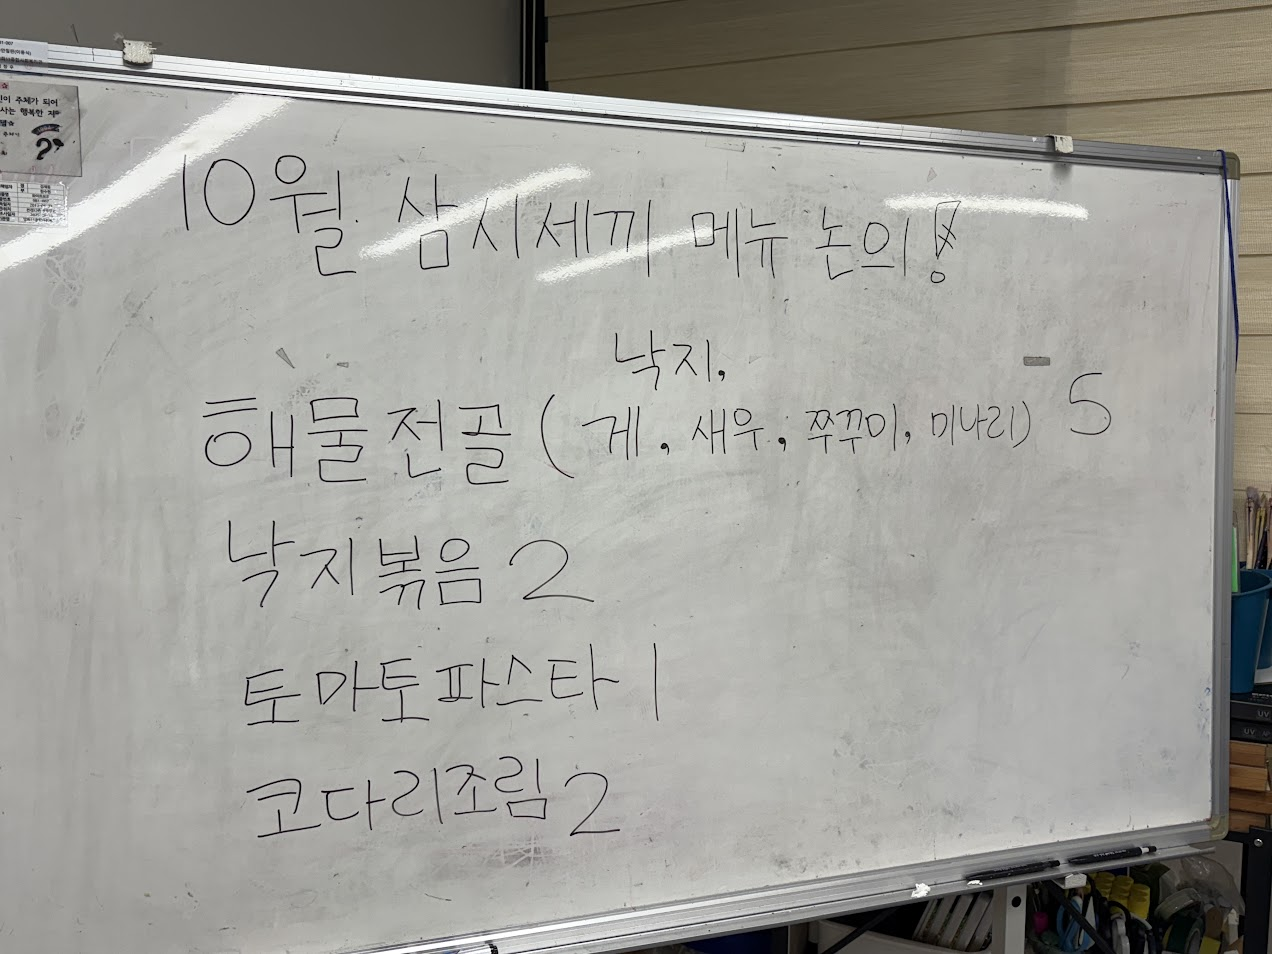 10월 삼시세끼 메뉴 논의!
낙지,
해물전골 (게, 새우, 쭈꾸미, 미나리) 5
낙지볶음 2
토마토파스타 1
코다리조림 2